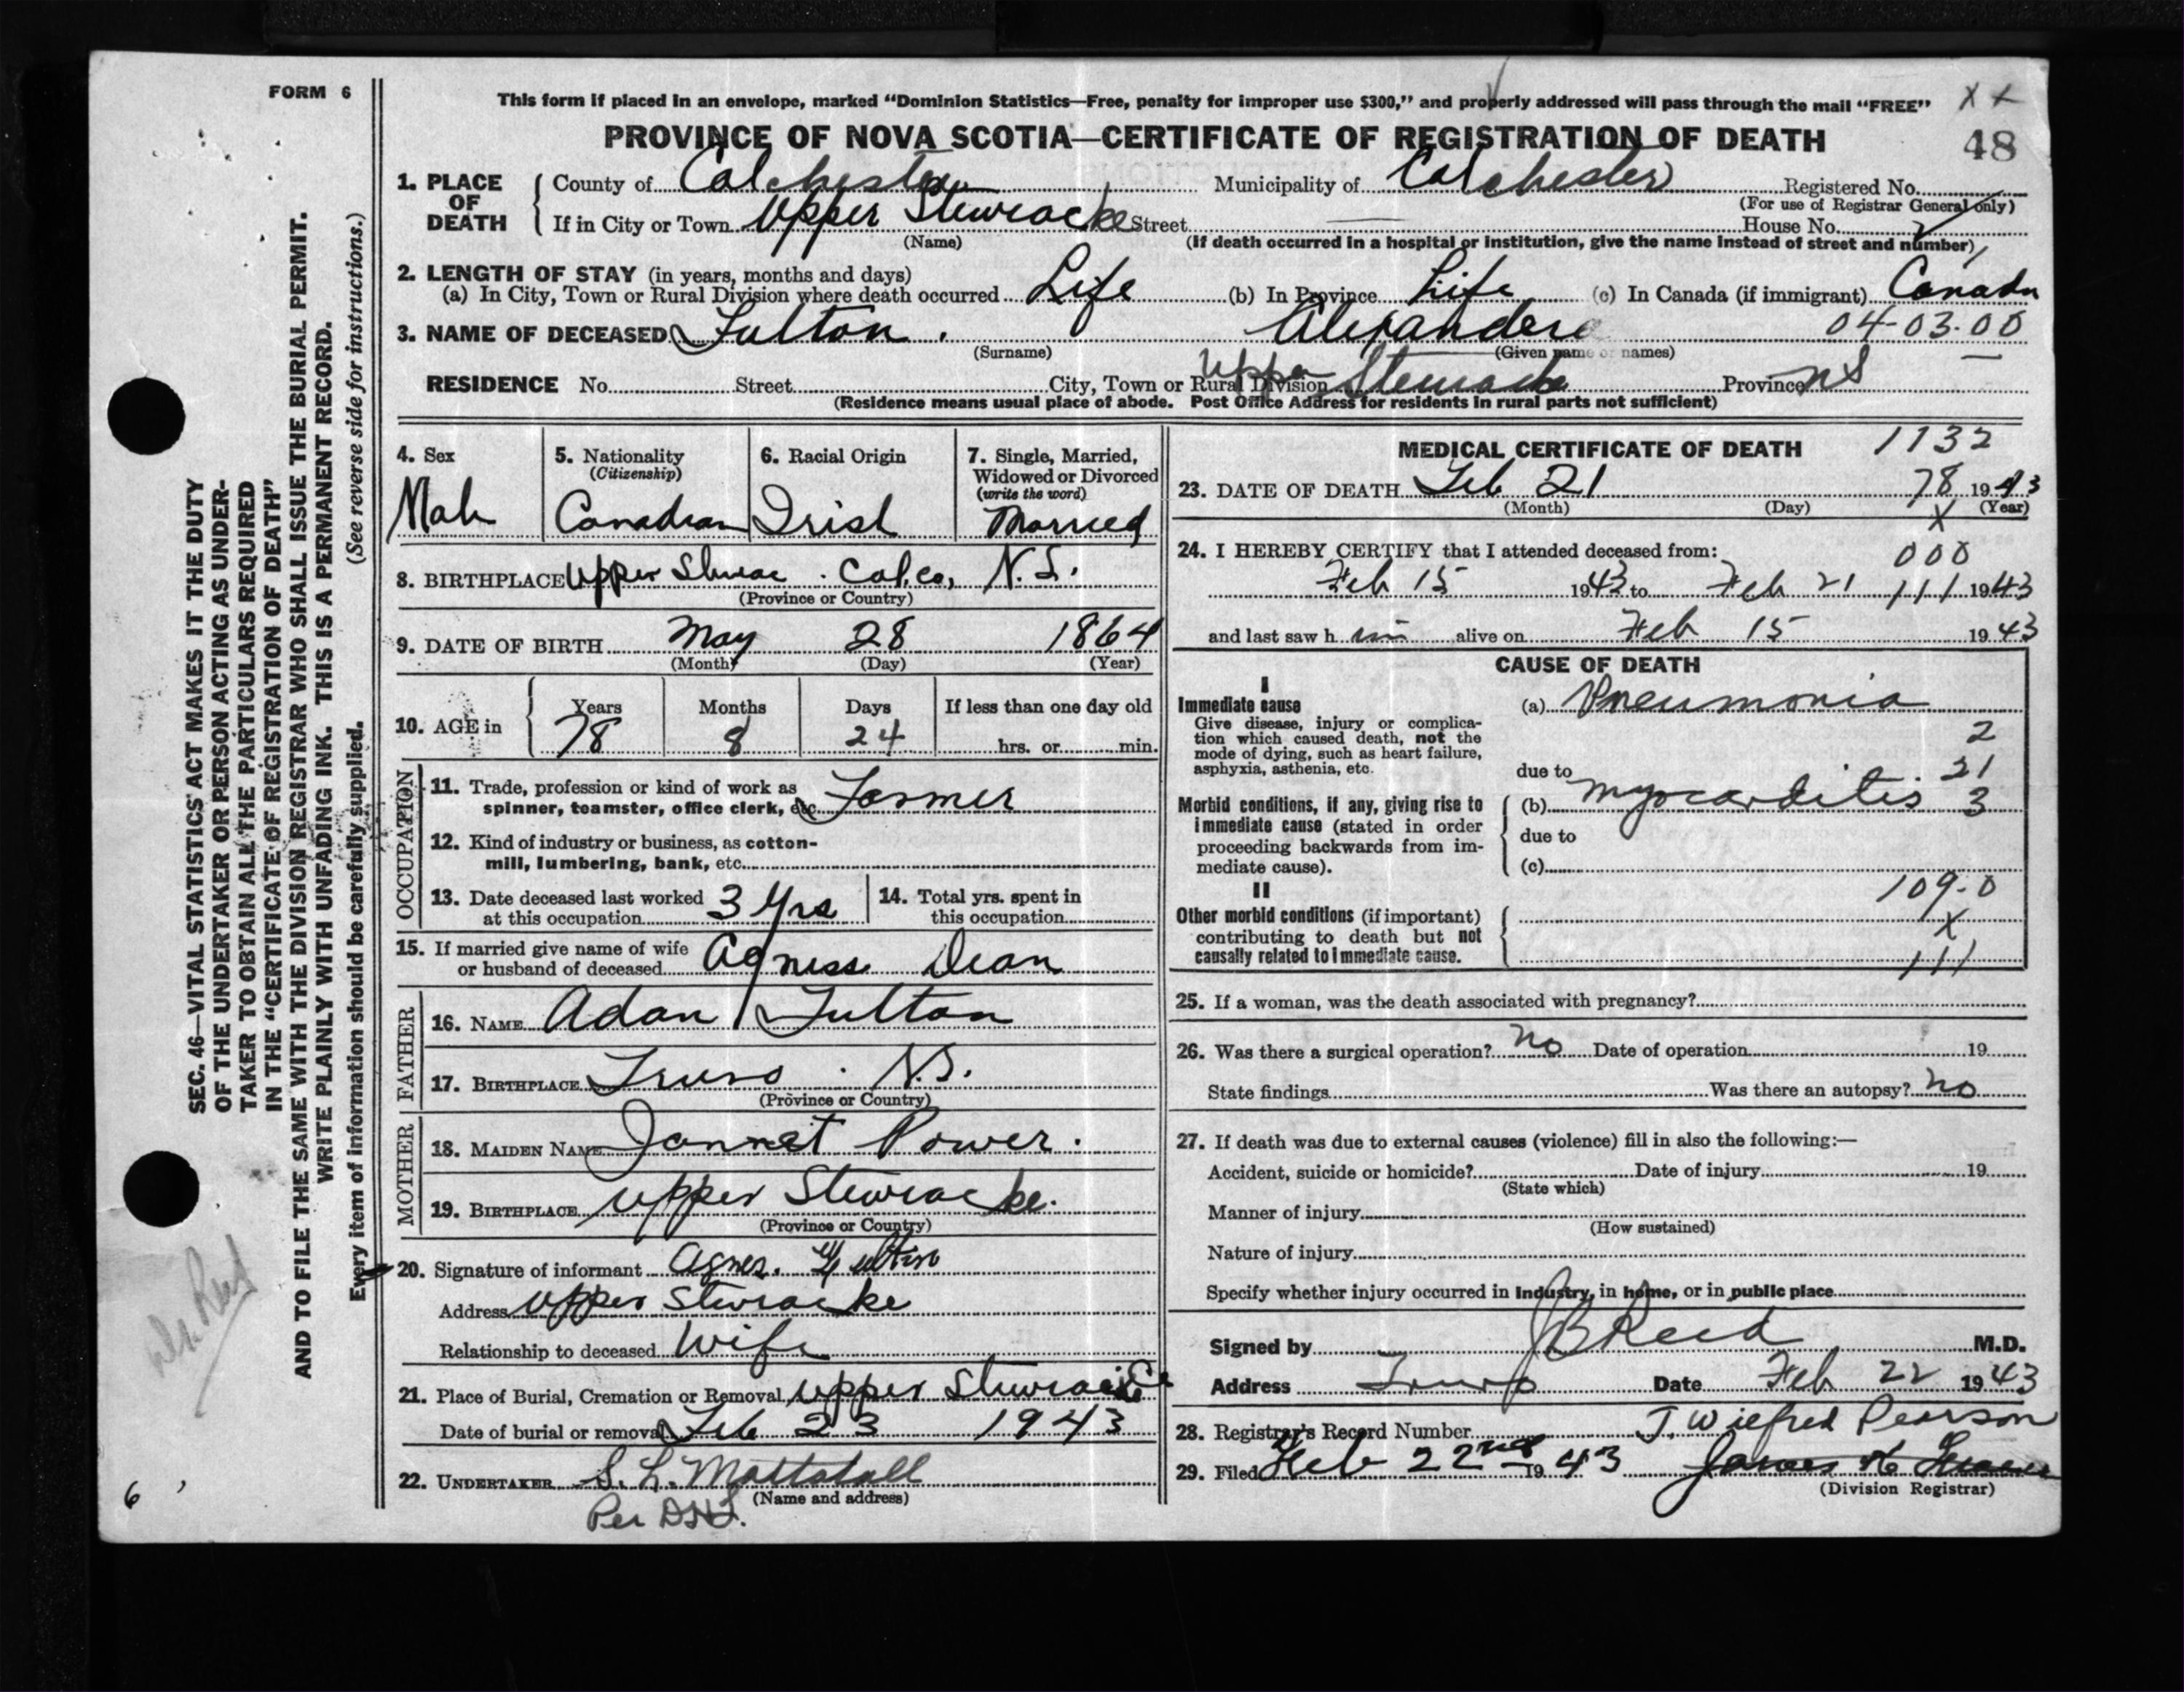 FORM 6
This form if placed in an envelope, marked “Dominion Statistics—Free, penalty for improper use $300,” and properly addressed will pass through the mail “FREE”
PROVINCE OF NOVA SCOTIA—CERTIFICATE OF REGISTRATION OF DEATH
48
1. PLACE OF DEATH
County of Colchester Municipality of Colchester Registered No.
(For use of Registrar General only)
If in City or Town Upper Stewiacke Street House No.
(Name) (If death occurred in a hospital or institution, give the name instead of street and number)
2. LENGTH OF STAY (in years, months and days)
(a) In City, Town or Rural Division where death occurred Life (b) In Province Life (c) In Canada (if immigrant) Canada
3. NAME OF DECEASED Fulton. Alexander 04-03-00
(Surname) (Given name or names)
RESIDENCE No. Street City, Town or Rural Division Upper Province NS
(Residence means usual place of abode. Post Office Address for residents in rural parts not sufficient)
4. Sex
Male
5. Nationality
(Citizenship)
Canadian
6. Racial Origin
Irish
7. Single, Married,
Widowed or Divorced
(write the word)
Married
8. BIRTHPLACE Upper Col. Co, N.S.
(Province or Country)
9. DATE OF BIRTH May 28 1864
(Month) (Day) (Year)
10. AGE in
Years Months Days If less than one day old
78 8 24 hrs. or min.
OCCUPATION
11. Trade, profession or kind of work as
spinner, teamster, office clerk, etc. Farmer
12. Kind of industry or business, as cotton-
mill, lumbering, bank, etc.
13. Date deceased last worked
at this occupation 3 Yrs
14. Total yrs. spent in
this occupation
15. If married give name of wife
or husband of deceased Agness Dean
FATHER
16. NAME Adam Fulton
17. BIRTHPLACE Truro. N.S.
(Province or Country)
MOTHER
18. MAIDEN NAME Jannet Power.
19. BIRTHPLACE Upper Stewiacke.
(Province or Country)
20. Signature of informant Agnes. Fulton
Address Upper Stewiacke
Relationship to deceased Wife
21. Place of Burial, Cremation or Removal Upper Stewiacke
Date of burial or removal Feb 23 1943
22. UNDERTAKER S. L. Mattatall
(Name and address)
Per
MEDICAL CERTIFICATE OF DEATH
1132
23. DATE OF DEATH Feb 21 78 1943
(Month) (Day) (Year)
X
24. I HEREBY CERTIFY that I attended deceased from: 000
Feb 15 1943 to Feb 21 111 1943
and last saw him alive on Feb 15 1943
CAUSE OF DEATH
I
Immediate cause
Give disease, injury or complica-
tion which caused death, not the
mode of dying, such as heart failure,
asphyxia, asthenia, etc.
(a) Pneumonia
2
due to 21
Morbid conditions, if any, giving rise to
immediate cause (stated in order
proceeding backwards from im-
mediate cause).
(b) Myocarditis 3
due to
(c)
109-0
II
Other morbid conditions (if important)
contributing to death but not
causally related to immediate cause.
X
111
25. If a woman, was the death associated with pregnancy?
26. Was there a surgical operation? No Date of operation 19
State findings Was there an autopsy? No
27. If death was due to external causes (violence) fill in also the following:—
Accident, suicide or homicide? Date of injury 19
(State which)
Manner of injury
(How sustained)
Nature of injury
Specify whether injury occurred in industry, in home, or in public place
Signed by J B Reid M.D.
Address Truro Date Feb 22 1943
28. Registrar's Record Number J. Wilfred Pearson
29. Filed Feb 22nd 1943 James
(Division Registrar)
SEC. 46—VITAL STATISTICS' ACT MAKES IT THE DUTY
OF THE UNDERTAKER OR PERSON ACTING AS UNDER-
TAKER TO OBTAIN ALL THE PARTICULARS REQUIRED
IN THE “CERTIFICATE OF REGISTRATION OF DEATH”
AND TO FILE THE SAME WITH THE DIVISION REGISTRAR WHO SHALL ISSUE THE BURIAL PERMIT.
WRITE PLAINLY WITH UNFADING INK. THIS IS A PERMANENT RECORD.
Every item of information should be carefully supplied. (See reverse side for instructions.)
Dr. Reid
6